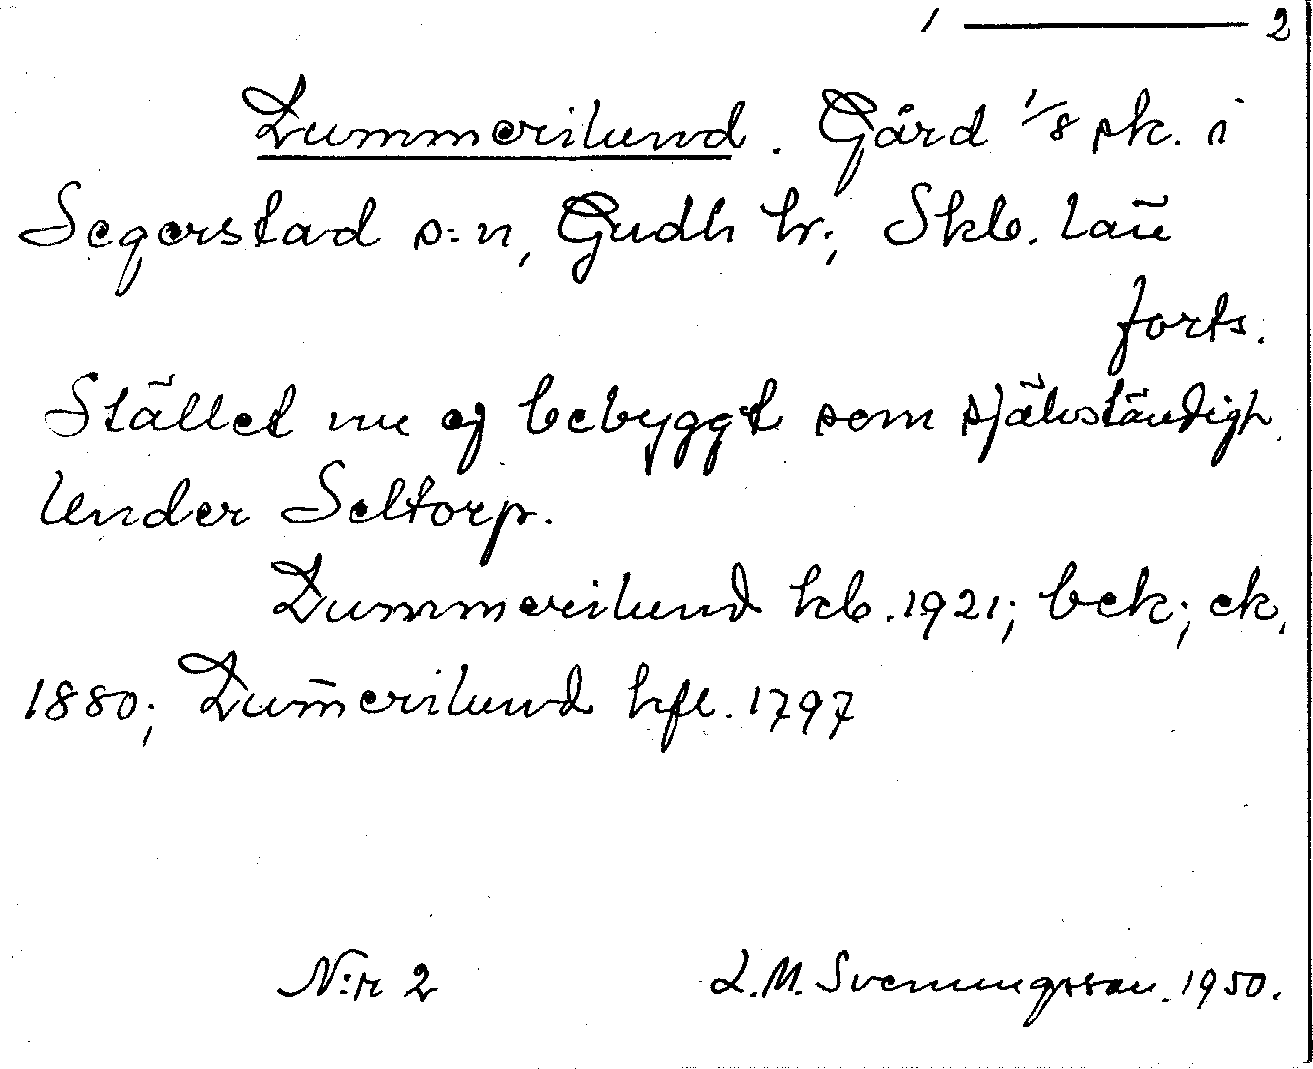 1 ——— 2
Dummerilund. Gård 1/8 sk. i
Segerstad s:n, Gudh hr; Skb. län
forts.
Stället nu ej bebyggt som självständigh.
Under Seltorp.
Dummerilund kb. 1921; bek; ek,
1880; Dum̄erilund hfl. 1797
N:r 2 L.M. Svenungsson. 1950.